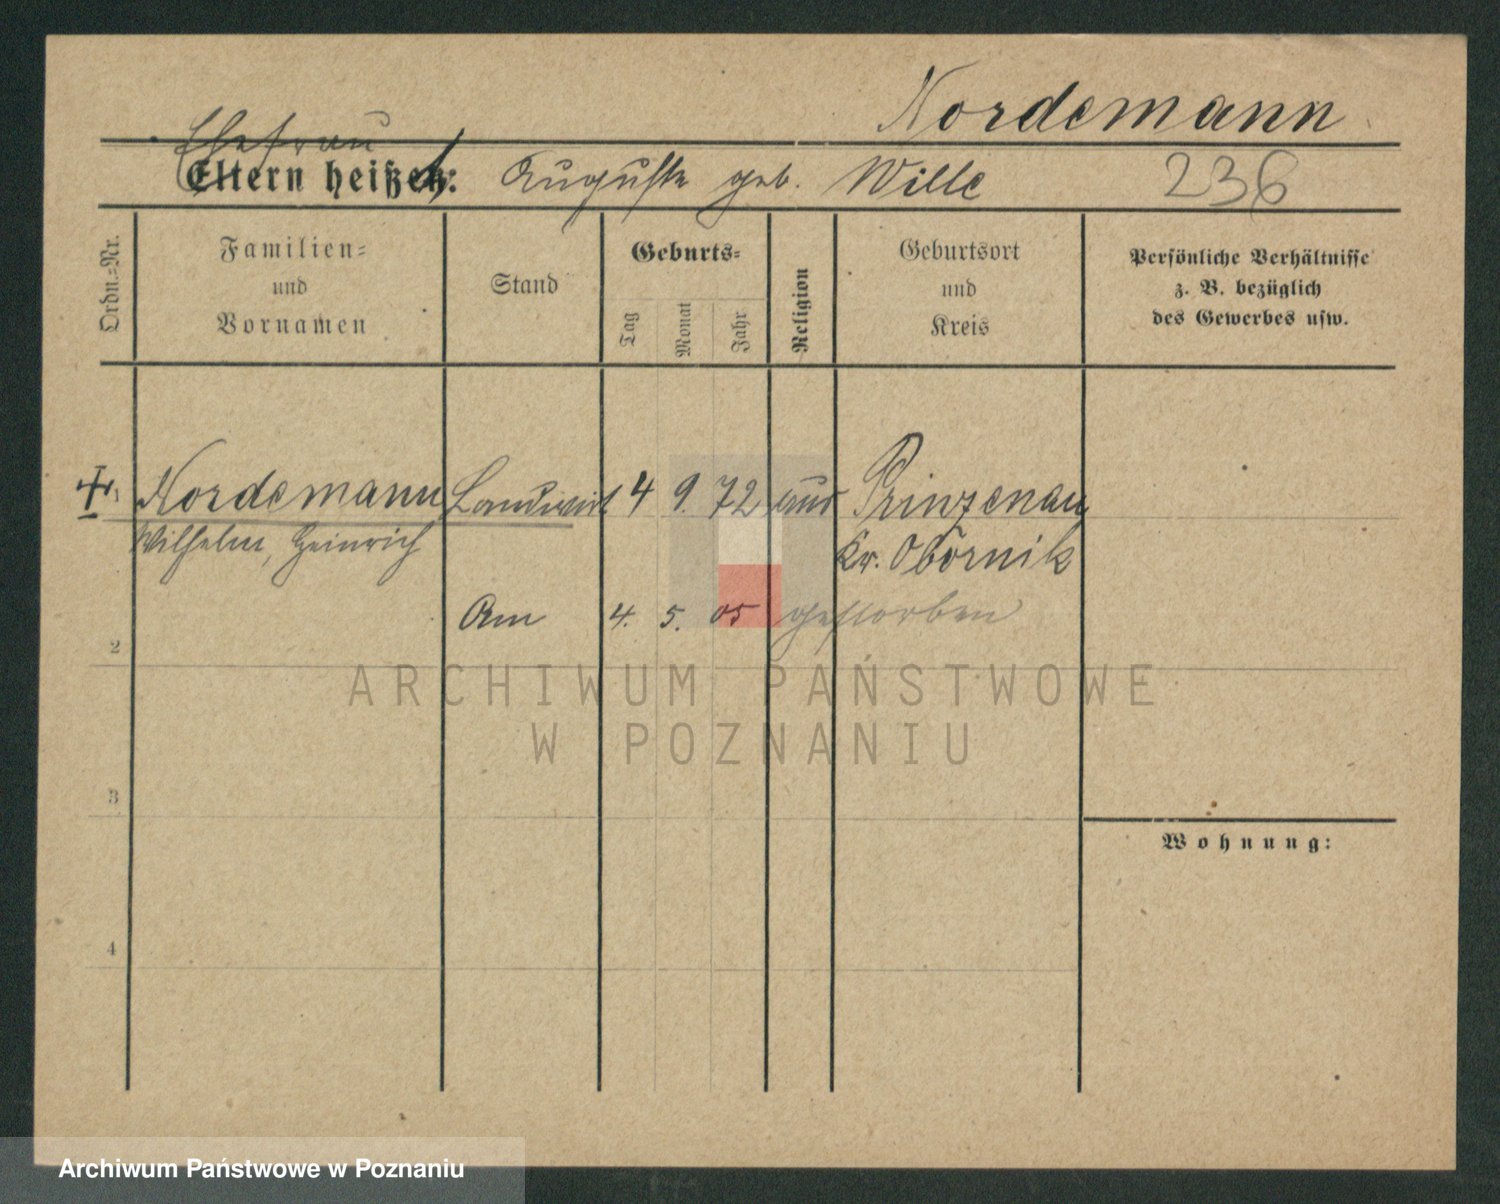 Nordemann
Ehefrau
Eltern heißen: Auguste geb. Wille 236
Ordn.=Nr.
Familien=
und
Vornamen
Stand
Geburts=
Tag
Monat
Jahr
Religion
Geburtsort
und
Kreis
Persönliche Verhältnisse
z. B. bezüglich
des Gewerbes usw.
1 Nordemann Landwirt 4 9. 72 aus Prinzenau
Wilhelm, Heinrich Kr. Obornik
Am 4. 5. 05 gestorben
2
ARCHIWUM PAŃSTWOWE
W POZNANIU
3
Wohnung:
4
Archiwum Państwowe w Poznaniu